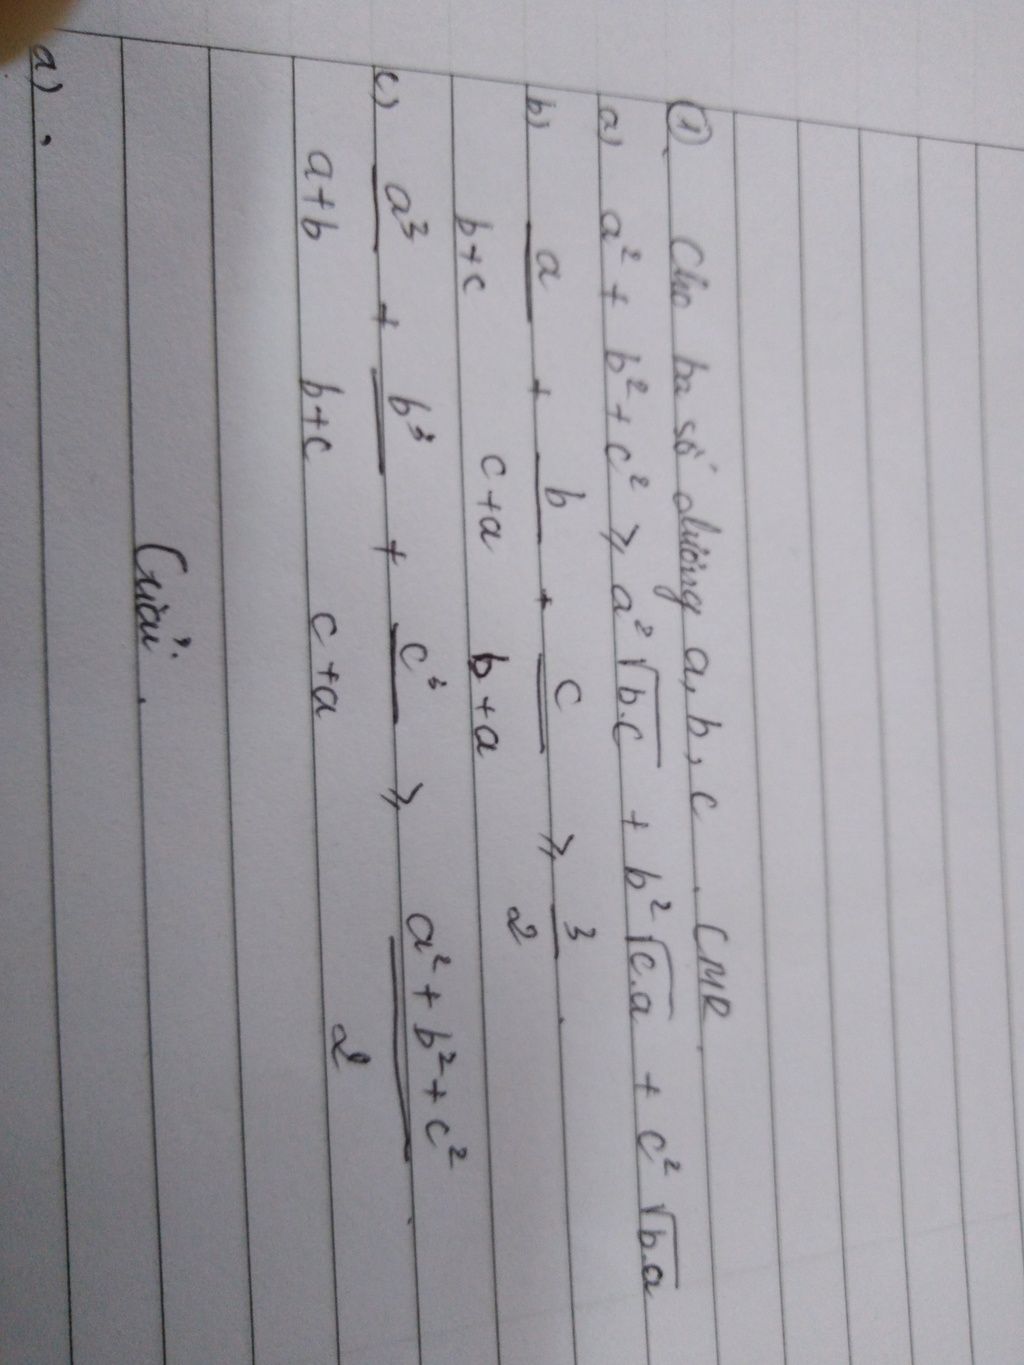 ① Cho ba số dương a, b, c. CMR.
a) a² + b² + c² ⩾ a²√b.c + b²√c.a + c²√b.a
b) a/b+c + b/c+a + c/b+a ⩾ 3/2.
c) a³/a+b + b³/b+c + c³/c+a ⩾ a²+b²+c²/2.
Giải.
a) .